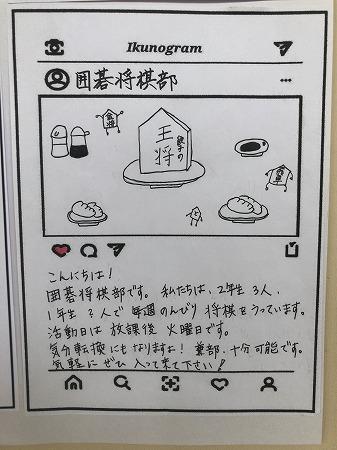 Ikunogram
囲碁将棋部
餃子の
王将
こんにちは!
囲碁将棋部です。私たちは、2年生3人、
1年生2人で毎週のんびり将棋をうっています。
活動日は放課後火曜日です。
気分転換にもなりますよ!兼部、十分可能です。
気軽にぜひ入って来て下さい!